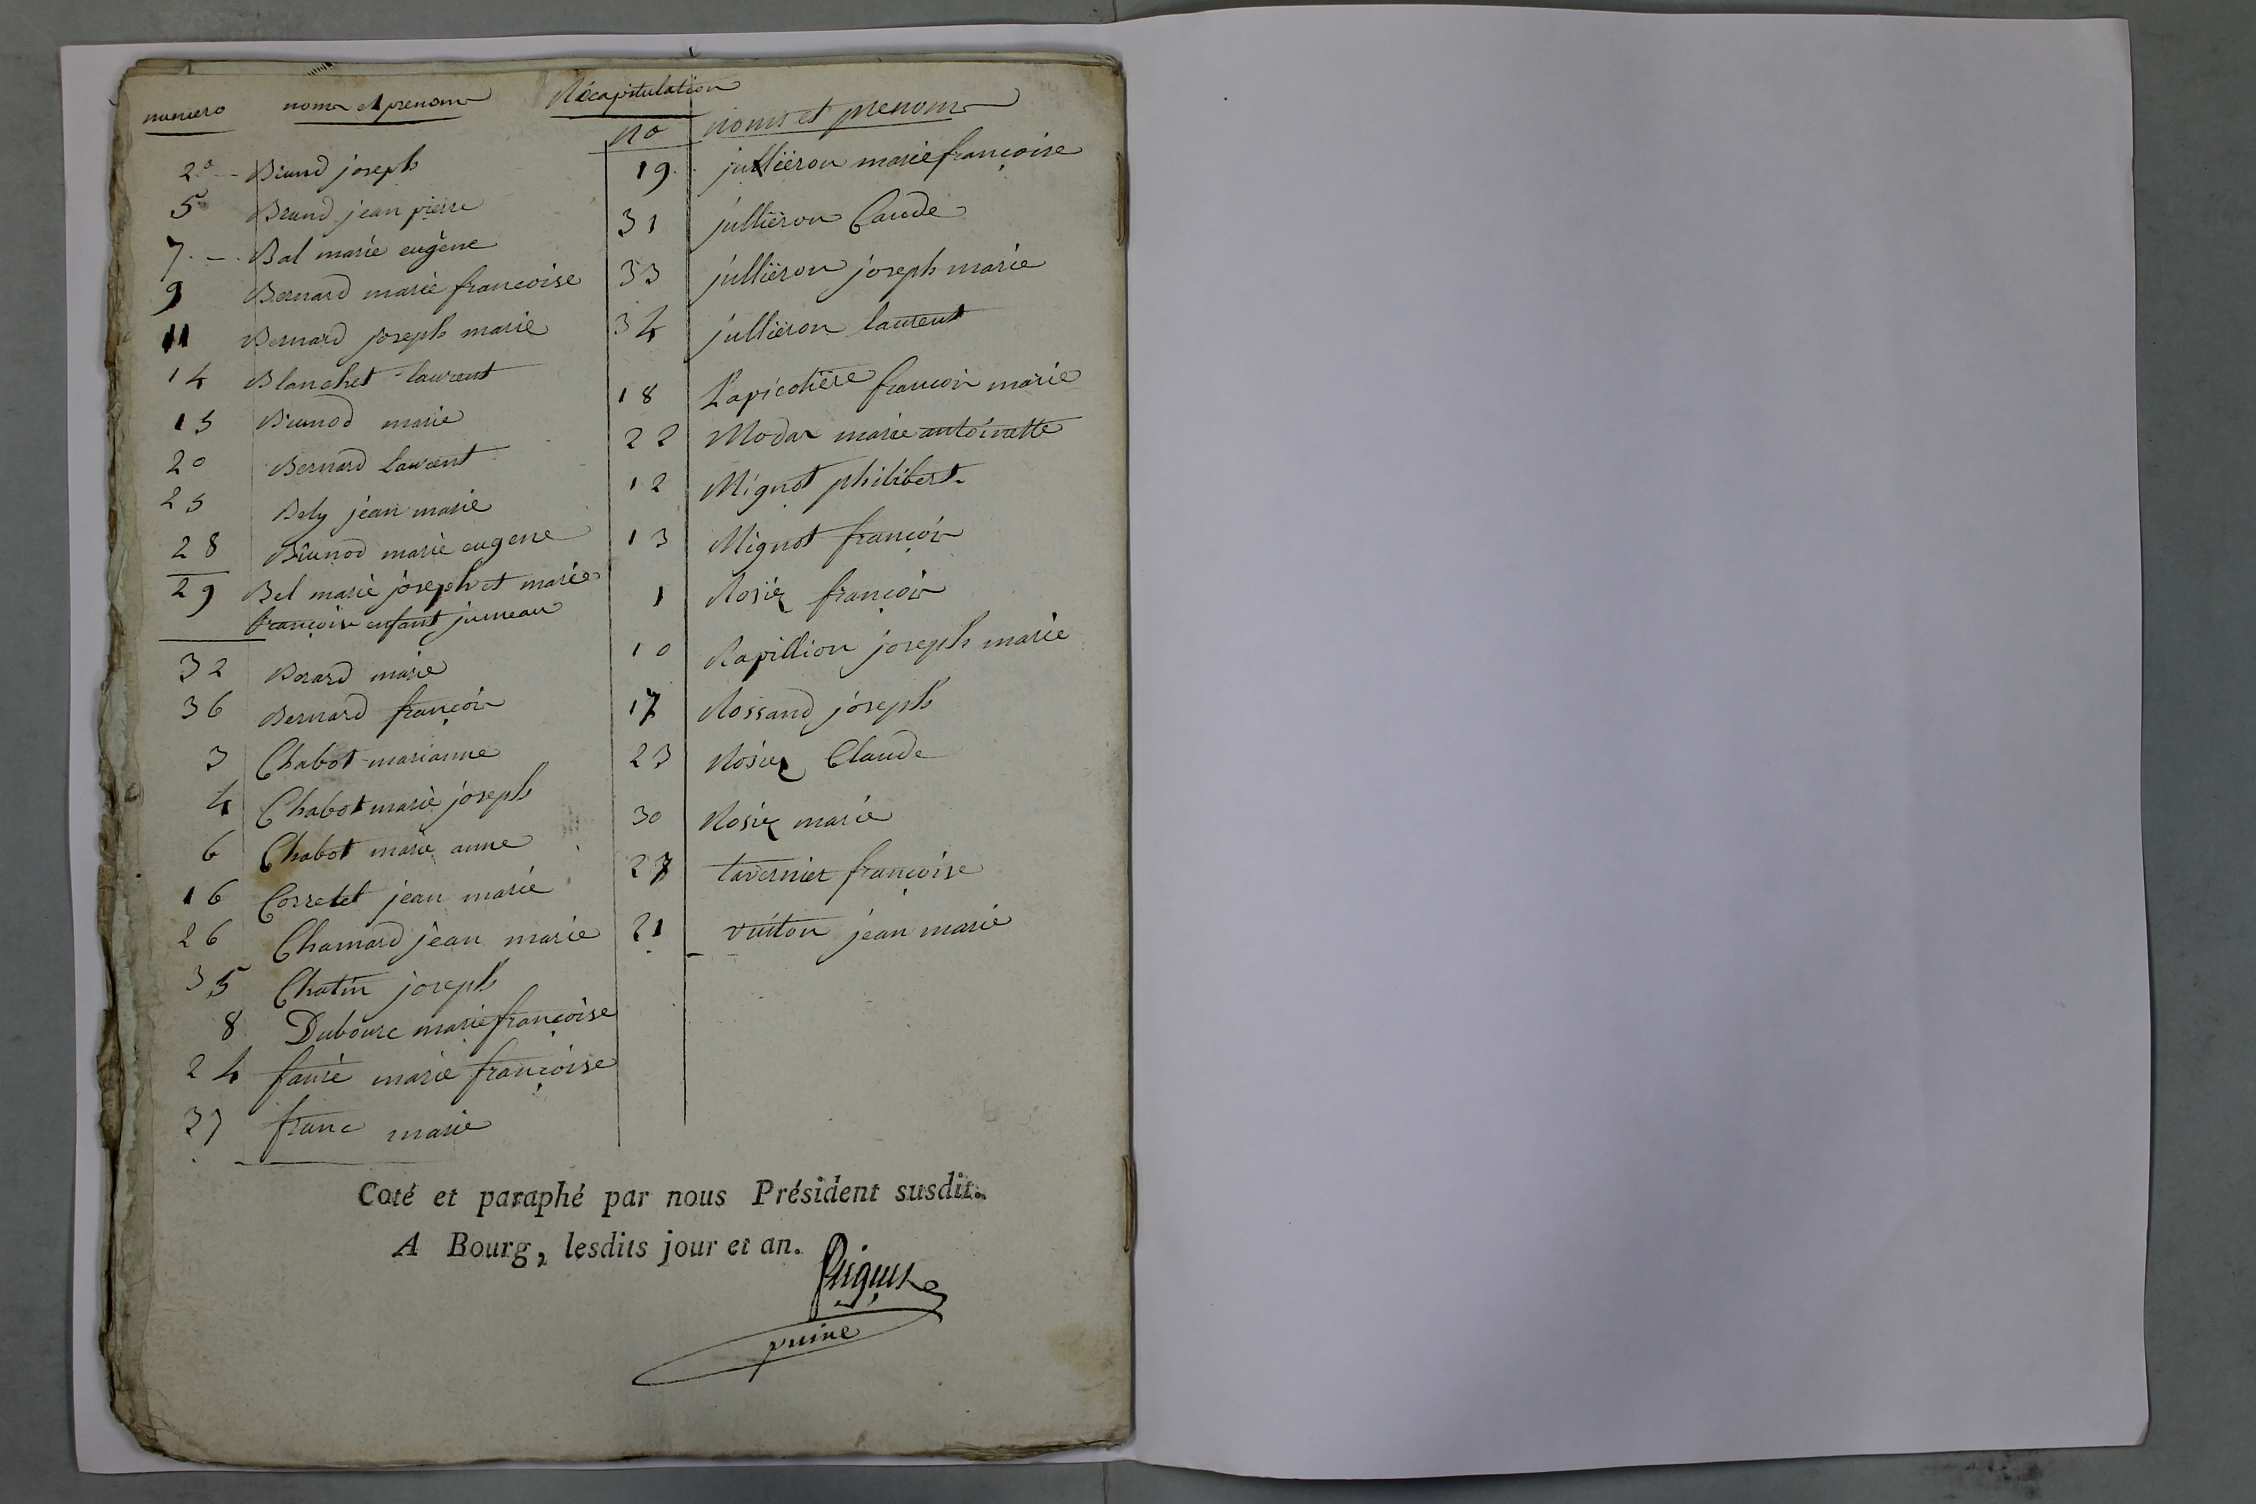 Récapitulation
numero noms et prenoms
2º Biund joseph
5 Brund jean pierre
7 Bal marie eugène
9 Bernard marie francoise
11 Bernard joseph marie
14 Blanchet laurent
15 Biunod marie
20 Bernard Laurent
25 Bely jean marie
28 Biunod marie eugene
29 Bel marie joseph et marie
françoise enfant jumeau
32 Berard marie
36 Bernard françois
3 Chabot marianne
4 Chabot marie joseph
6 Chabot marie anne
16 Corretet jean marie
26 Chamard jean marie
35 Chatin joseph
8 Dubourc marie françoise
24 faure marie françoise
37 franc marie
no noms et prenoms
19 julliëron marie françoise
31 jullieron Caude
33 jullieron joseph marie
34 jullieron laurent
18 Lapicotière francois marie
22 Modas marie antoinette
12 Mignot philibert
13 Mignot françois
1 Rosiez françois
10 Rapillion joseph marie
17 Rossand joseph
23 Rosiez Claude
30 Rosiez marie
27 tavernier françoise
21 vuiton jean marie
Coté et paraphé par nous Président susdit.
A Bourg, lesdits jour et an.
puine